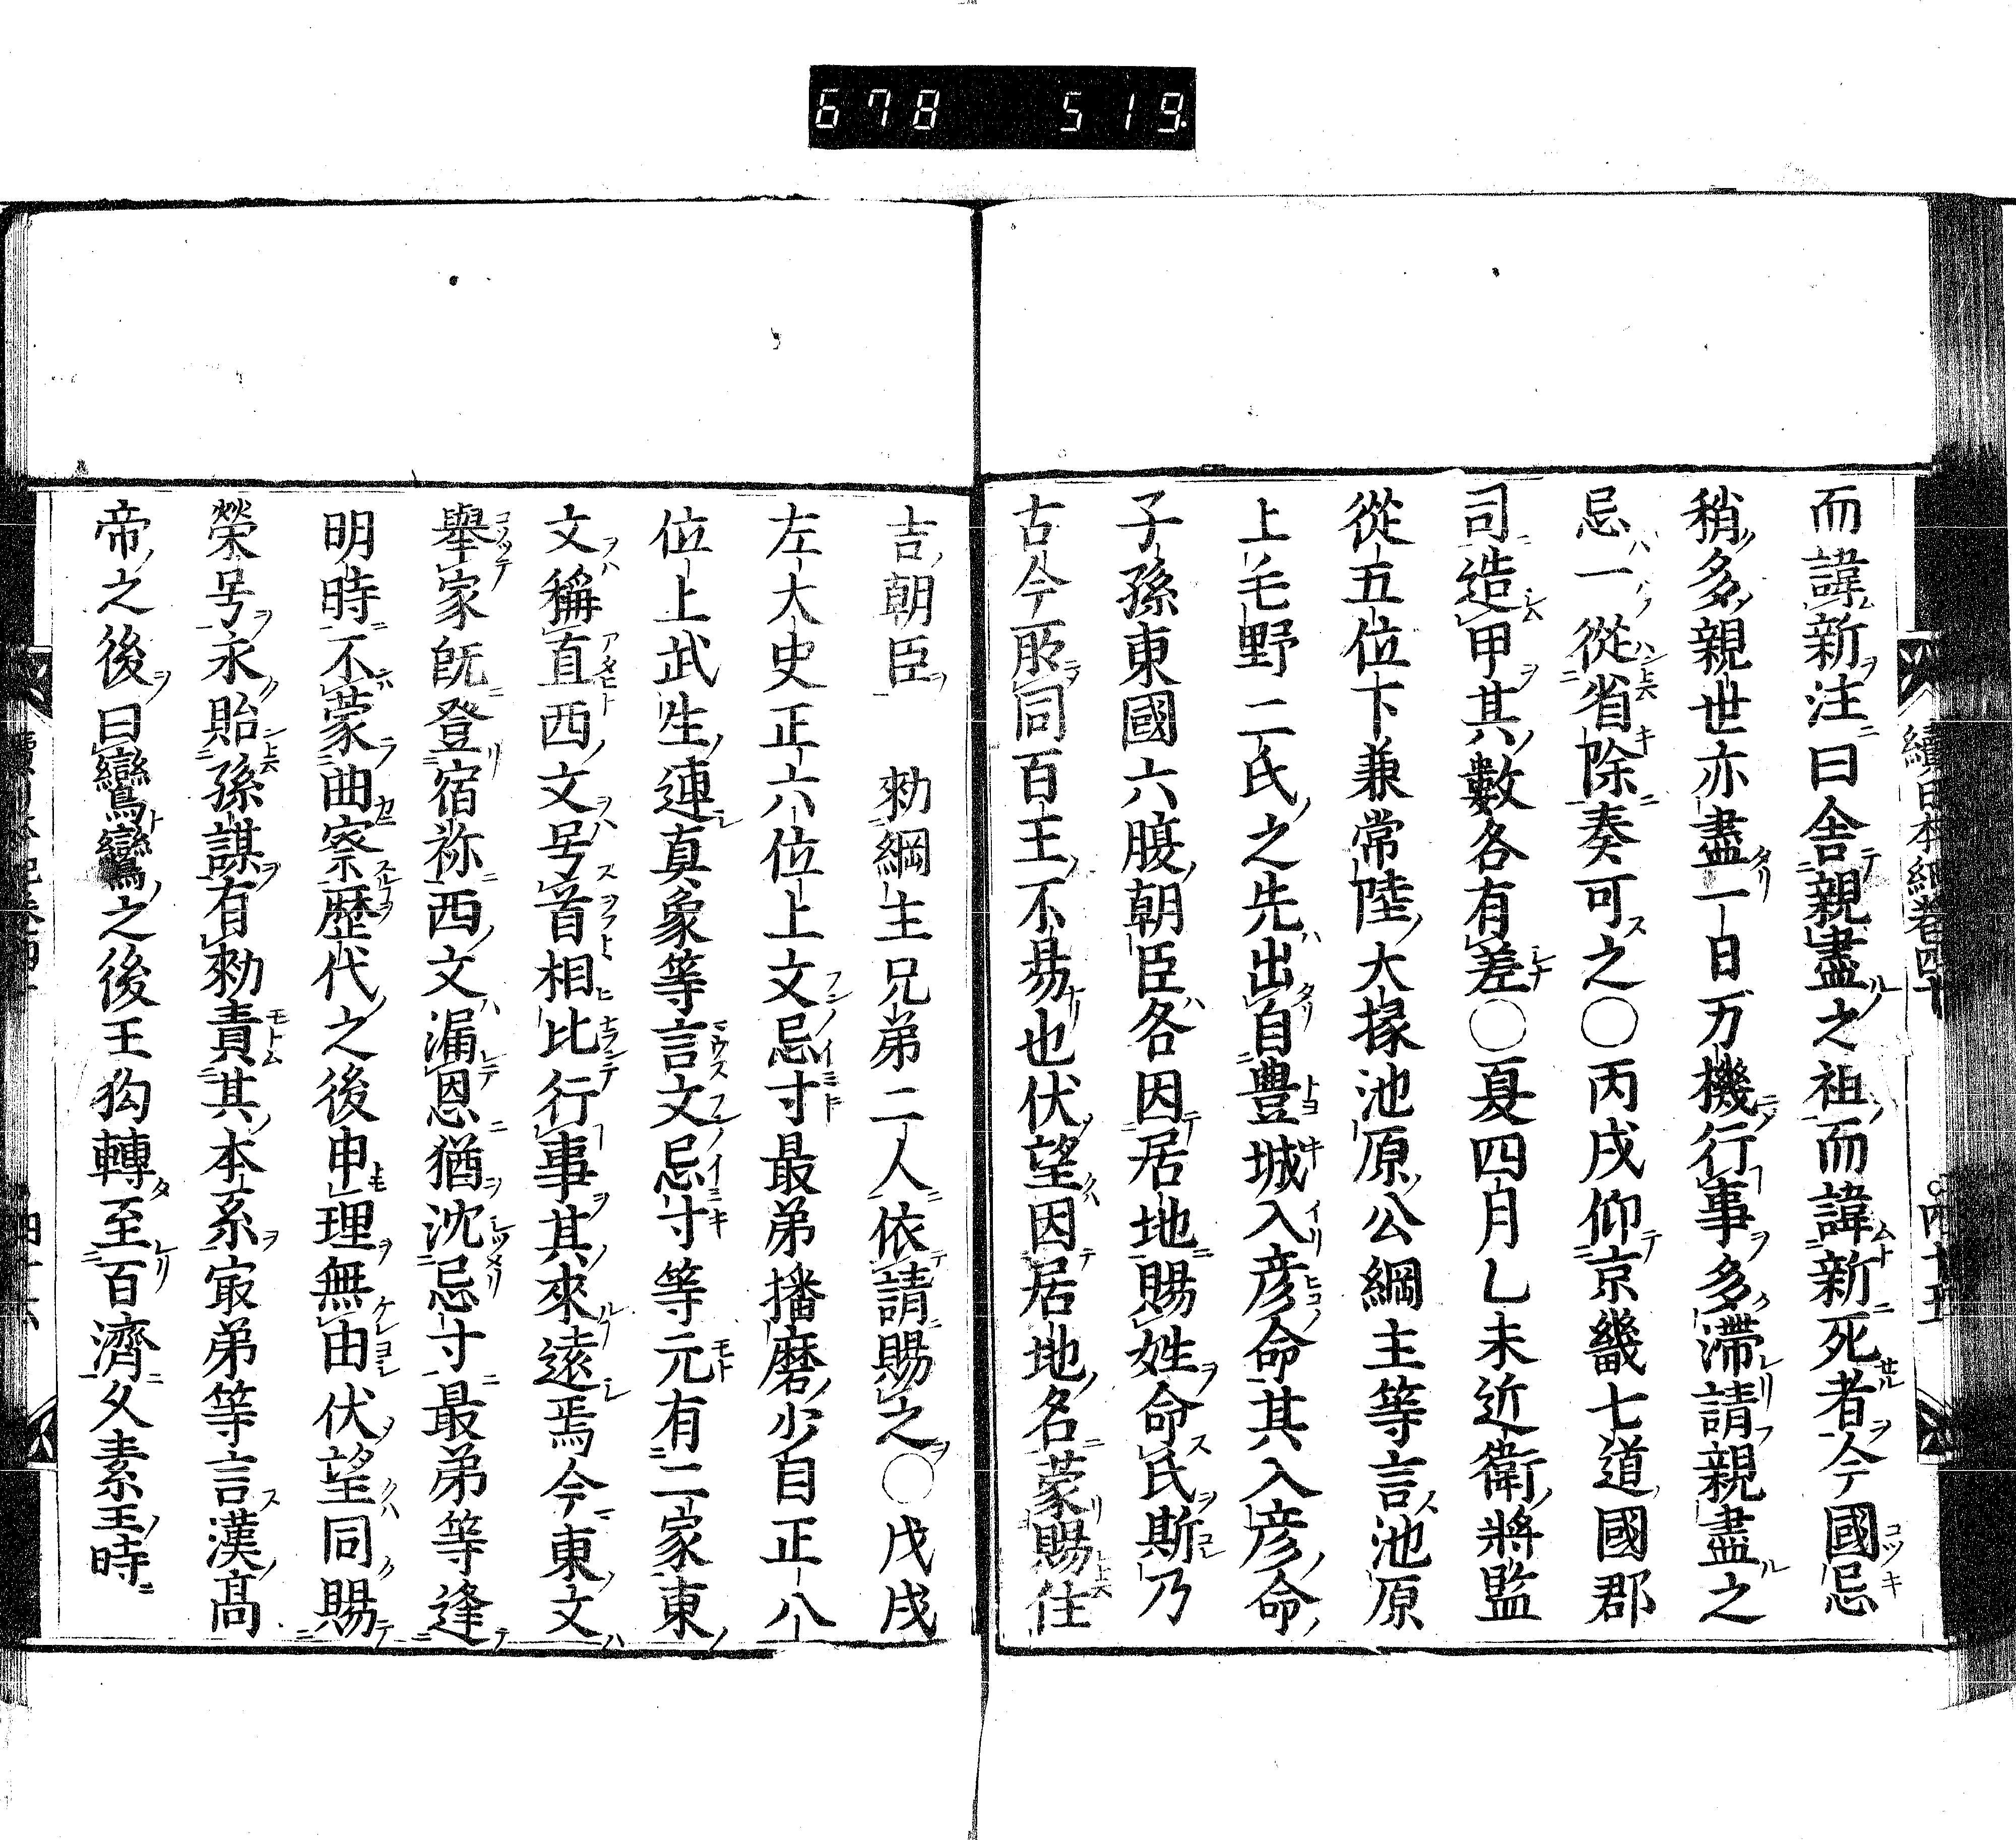 678 519
續日本紀卷四十
四十五
而諱新注曰舎親盡之祖而諱新死者今國忌
稍多親世亦盡一日万機行事多滞請親盡之
忌一從省除奏可之○丙戌仰京畿七道國郡
司造甲其數各有差○夏四月乙未近衛將監
從五位下兼常陸大掾池原公綱主等言池原
上毛野二氏之先出自豐城入彦命其入彦命
子孫東國六腹朝臣各因居地賜姓命氏斯乃
古今所同百王不易也伏望因居地名蒙賜住
吉朝臣　勅綱主兄弟二人依請賜之○戊戌
左大史正六位上文忌寸最弟播磨少目正八
位上武生連真象等言文忌寸等元有二家東
文稱直西文号首相比行事其來遠焉今東文
舉家既登宿祢西文漏恩猶沈忌寸最弟等逢
明時不蒙曲察歴代之後申理無由伏望同賜
榮号永貽孫謀有勅責其本系最弟等言漢高
帝之後曰鸞鸞之後王狗轉至百濟久素王時